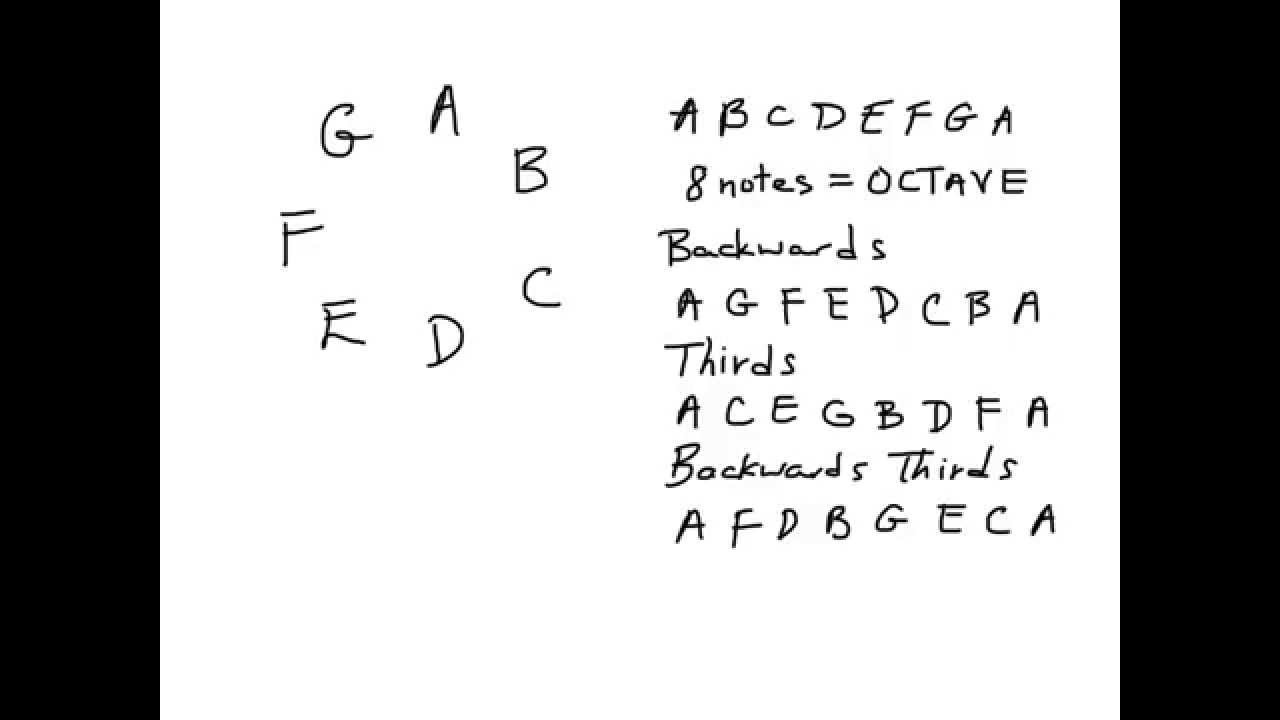 G A
B
F
C
E D
A B C D E F G A
8 notes = OCTAVE
Backwards
A G F E D C B A
Thirds
A C E G B D F A
Backwards Thirds
A F D B G E C A